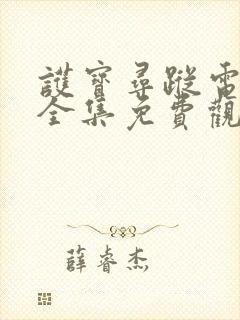 護寶尋蹤電
全集免費觀
薛睿杰